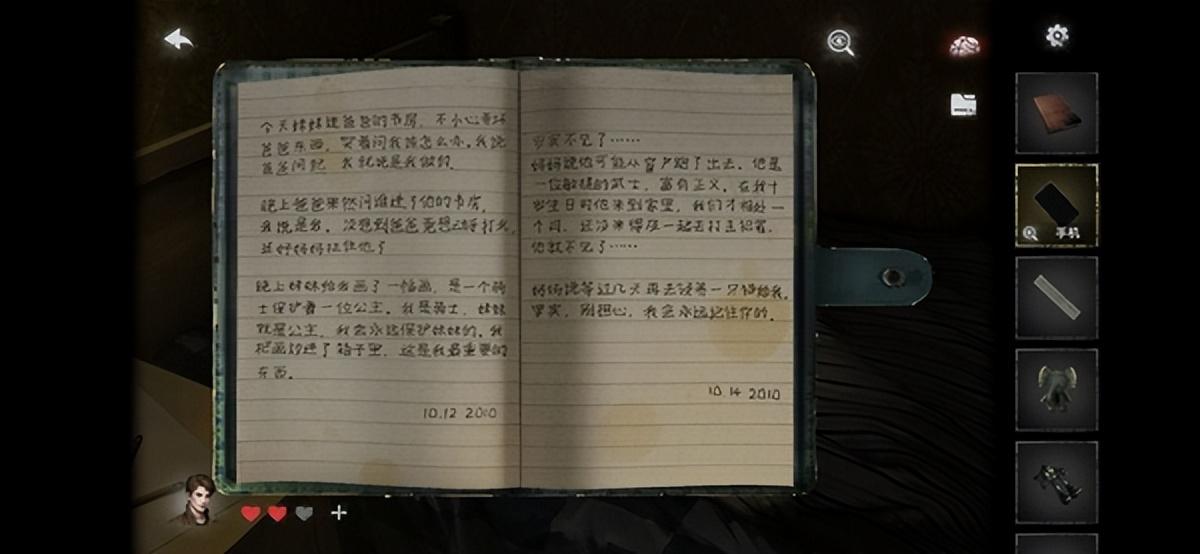 今天妹妹进爸爸的书房，不小心弄坏
爸爸东西，哭着问我该怎么办，我说
爸爸问起 我就说是我做的。
晚上爸爸果然问谁进了他的书房，
我说是我，没想到爸爸竟想动手打我，
还好妈妈拦住他了
晚上妹妹给我画了一幅画，是一个骑
士保护着一位公主。我是骑士，妹妹
就是公主，我会永远保护妹妹的。我
把画放进了箱子里，这是我最重要的
东西。
10.12 2010
不见了……
妈妈说他可能从窗户跑了出去，他是
一位敏捷的武士，富有正义，在我十
岁生日时他来到家里，我们才相处一
个月，还没来得及一起去打击犯罪，
他就不见了……
妈妈说等过几天再去没养一只猫给我。
别担心，我会永远记住你的。
10.14 2010
手机